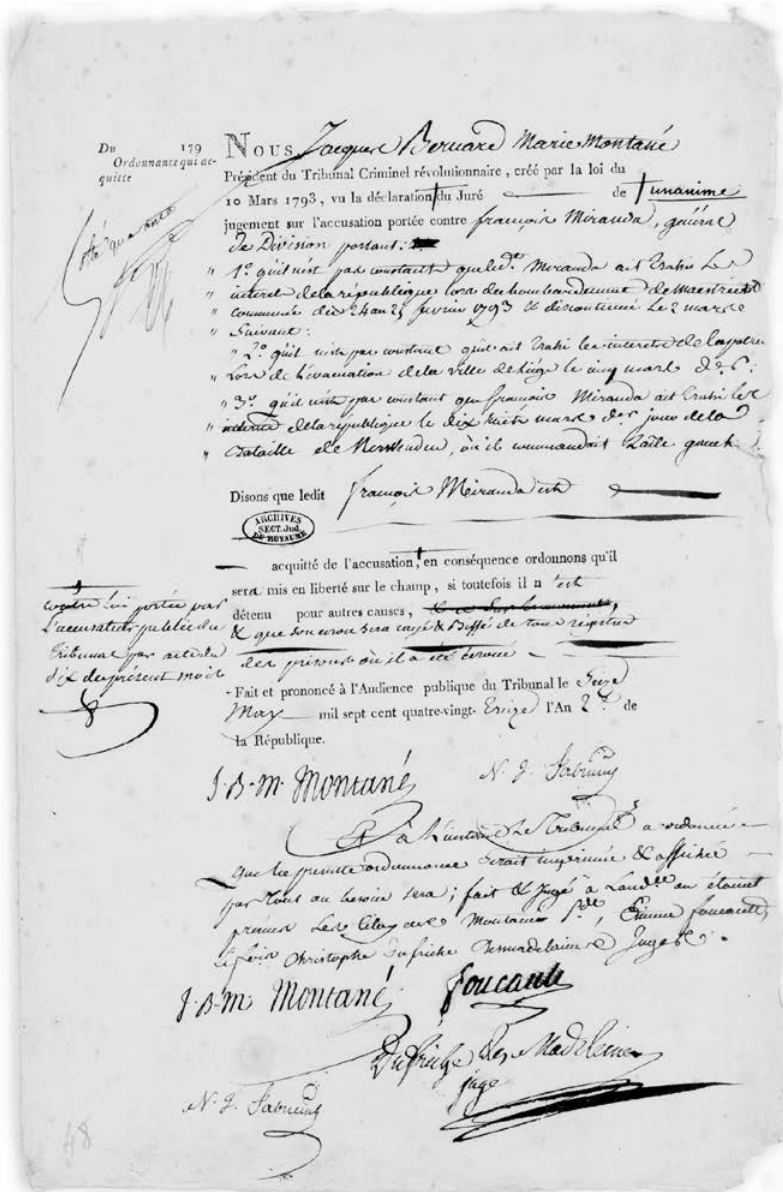 Du 179
Ordonnance qui ac-
quitte
Nous Jacques Bernard Marie Montané
Président du Tribunal Criminel révolutionnaire, créé par la loi du
10 Mars 1793, vu la déclaration du Juré de unanime
jugement sur l'accusation portée contre françois Miranda, général
de Division portant :
" 1º. qu'il n'est pas constant que led. Miranda ait trahi les
" interet de la république lors du bombardement de maestricht
" commencé du 24 au 25 fevrier 1793 & discontinué le 2 mars
" Suivant :
" 2º. qu'il n'est pas constant qu'il ait trahi les interets de la patrie
" Lors de l'évacuation de la ville de Liège le cinq mars
" 3º. qu'il n'est pas constant que françois Miranda ait trahi les
" de la république le dix huit mars jour de la
" Bataille de Nerwinden, où il commandoit l'aile gauche.
Disons que ledit françois Miranda est
ARCHIVES
SECT. Jud.
DU ROYAUME
acquitté de l'accusation, en conséquence ordonnons qu'il
sera mis en liberté sur le champ, si toutefois il n'est
détenu pour autres causes,
& que son écrou sera rayé & Biffé de tous registres
des prisons où il a été écroué
contre lui portée par
L'accusateur public du
Tribunal par acte du
dix du présent mois
Fait et prononcé à l'Audience publique du Tribunal le Seize
May mil sept cent quatre-vingt-treize l'An 2.e de
la République.
J.-B-M. Montané
N. J.
à L'instant Le Tribunal a ordonné
que la présente ordonnance serait imprimée & affichée
par tout ou besoin sera ; fait & Jugé à L'audce ou étaient
présens Les Citoyens Montané Etienne foucault,
Christophe Dufriche Desmadelaines Juges.
J-B-M Montané foucault
Dufriche des Madeleines
juge
N. J.
48